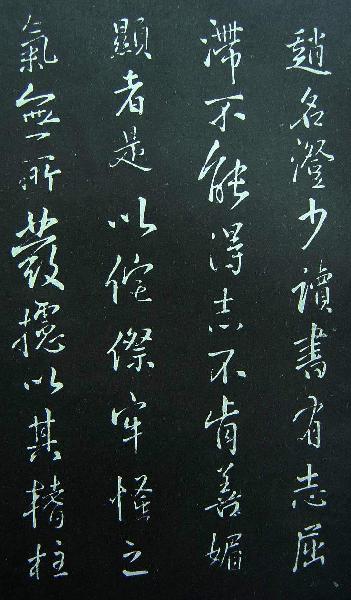 趙名澄少讀書有志屈
滯不能得志不肯善媚
顯者是以侘傺牢慅之
氣無所發攄以其柱